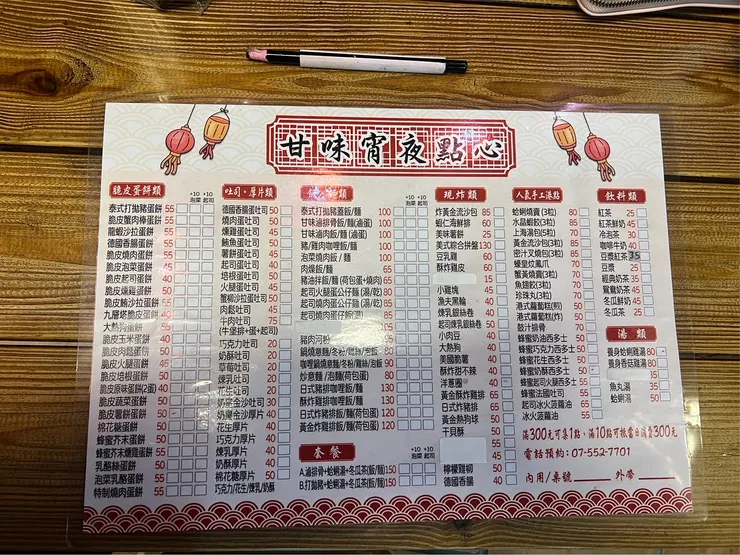 甘味宵夜點心
脆皮蛋餅類 +10 +10
泡菜 起司
泰式打拋豬蛋餅 55
脆皮蟹肉棒蛋餅
龍蝦沙拉蛋餅
德國香腸蛋餅
脆皮燒肉蛋餅
脆皮泡菜蛋餅
脆皮起司蛋餅
脆皮燻雞蛋餅
脆皮鮪沙拉蛋餅
九層塔脆皮蛋餅
大熱狗蛋餅
脆皮玉米蛋餅
脆皮肉鬆蛋餅
脆皮火腿蛋餅
脆皮培根蛋餅
脆皮原味蛋餅(2蛋) 40
脆皮蔬菜蛋餅
脆皮薯餅蛋餅
棉花糖蛋餅
蜂蜜芥末蛋餅
蜂蜜芥末燻雞蛋餅 55
乳酪絲蛋餅
泡菜乳酪蛋餅 55
特制燒肉蛋餅 55
吐司・厚片類
德國香腸蛋吐司 50
燒肉蛋吐司 50
燻雞蛋吐司
鮪魚蛋吐司
薯餅蛋吐司
起司蛋吐司
培根蛋吐司
火腿蛋吐司
蟹柳沙拉蛋吐司 50
肉鬆吐司
牛肉吐司 75
(牛堡排+蛋+起司)
巧克力吐司 20
奶酥吐司 20
草莓吐司 20
煉乳吐司 20
花生吐司 20
奶皇金沙厚片 40
花生厚片 40
巧克力厚片 40
煉乳厚片 40
奶酥厚片 40
棉花糖厚片 50
巧克力/花生/煉乳/奶酥
+10 +10
泡菜 起司
泰式打拋豬蓋飯/麵 100
甘味滷排骨飯/麵(滷蛋) 100
甘味滷肉飯/麵(滷蛋)
豬/雞肉咖哩飯/麵 100
泡菜燒肉飯/麵 100
肉燥飯/麵 65
豬油拌飯/麵(荷包蛋+燒肉) 65
起司火腿蛋公仔麵(湯/乾) 80
起司燒肉蛋公仔麵(湯/乾) 85
起司燒肉蛋仔飯(湯)
豬肉河粉
鍋燒意麵/冬粉/雞絲/泡飯
咖哩鍋燒意麵/冬粉/雞絲/泡飯
炒意麵/泡麵(荷包蛋) 80
日式豬排咖哩飯/麵 120
酥炸雞排咖哩飯/麵 120
日式炸豬排飯/麵(荷包蛋) 120
黃金炸雞飯/麵(荷包蛋) 120
套餐 +10 +10
泡菜 起司
A.滷排骨+蛤蜊湯+冬瓜茶(飯/麵) 150
B.打拋豬+蛤蜊湯+冬瓜茶(飯/麵) 150
現炸類
炸黃金流沙包 85
蝦仁海鮮排 60
美味薯餅 25
美式綜合拼盤 130
豆乳雞 60
酥炸雞皮 60
15
小雞塊 45
漁夫黑輪 40
煉乳銀絲卷 50
起司煉乳銀絲卷 50
小肉豆
大熱狗
美國脆薯
酥炸甜不辣 40
洋蔥圈
黃金酥炸雞排
日式炸豬排 65
黃金熱狗球 50
干貝酥 50
55
45
檸檬雞柳 50
德國香腸 40
人氣手工港點
蛤蜊燒賣(3粒) 80
水晶蝦餃(3粒)
上海湯包(5粒) 70
黃金流沙包(3粒) 85
密汁叉燒包(3粒)
蠔皇炆鳳爪
蟹黃燒賣(3粒)
魚翅餃(3粒)
珍珠丸(3粒)
港式蘿蔔糕(煎) 50
港式蘿蔔糕(炸)
鼓汁排骨
蜂蜜奶油西多士
蜂蜜巧克力西多士 50
蜂蜜花生西多士
蜂蜜奶酥西多士
蜂蜜起司火腿西多士 55
蜂蜜法國吐司
起司冰火菠蘿油
冰火菠蘿油
飲料類
紅茶 25
紅茶鮮奶 45
冷泡茶 30
咖啡牛奶 40
豆漿紅茶 35
豆漿 25
經典奶茶 35
鴛鴦奶茶 45
冬瓜鮮奶 45
冬瓜茶 25
湯類
養身蛤蜊雞湯 80
養身香菇雞湯 80
35
魚丸湯 35
蛤蜊湯 50
滿300元可集1點,滿10點可抵當日消費300元
電話預約:07-552-7701
內用/桌號 外帶